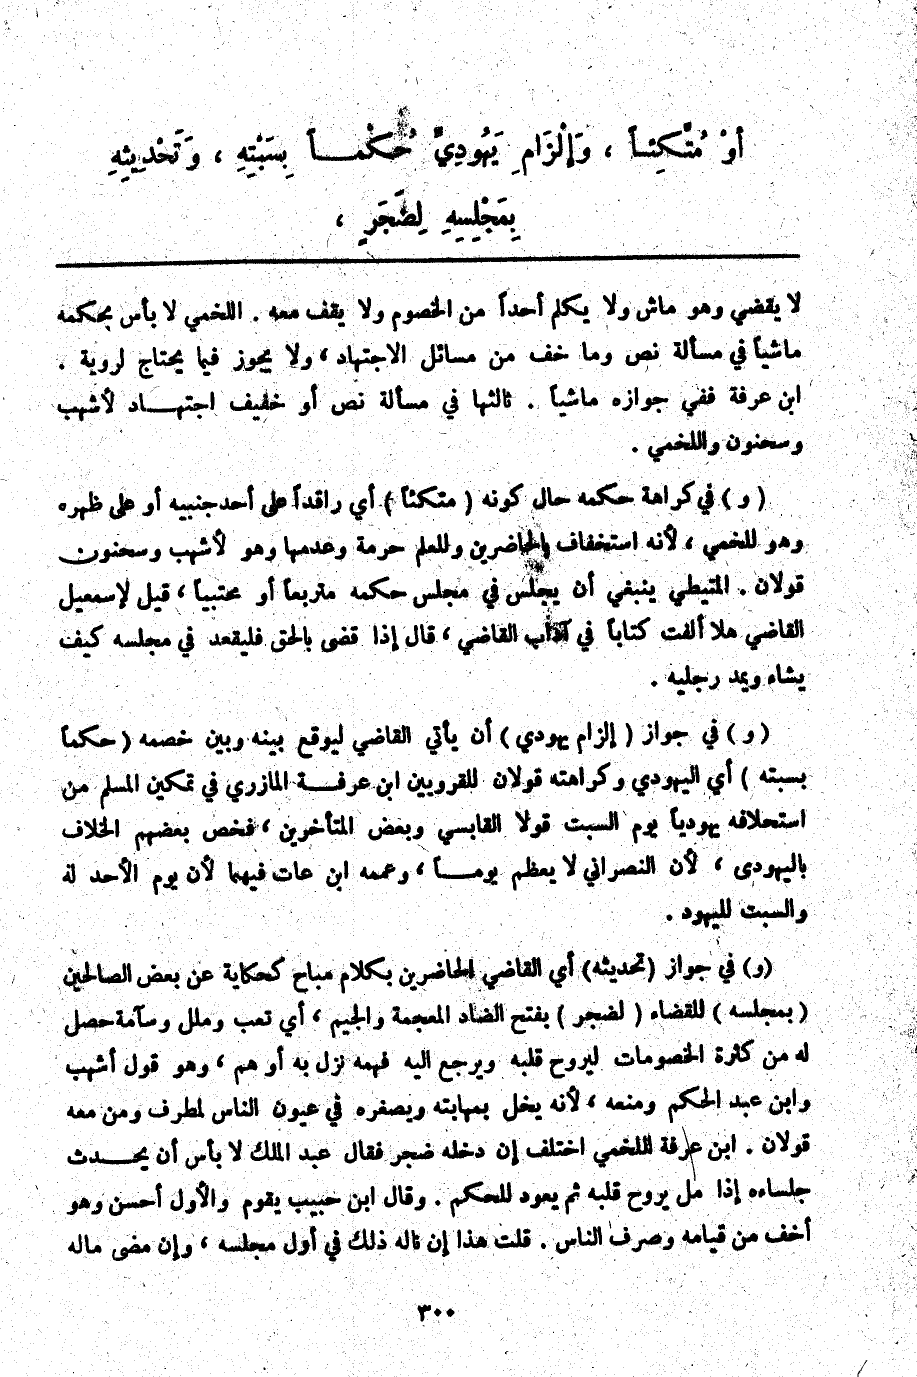 أَوْ مُتَّكِئاً ، وَإِلْزَامِ يَهُودِيٍّ حُكْماً بِسَبْتِهِ ، وَتَحْدِيثِهِ
بِمَجْلِسِهِ لِضَجَرٍ ،
لا يقضي وهو ماش ولا يكلم أحداً من الخصوم ولا يقف معه . اللخمي لا بأس بحكمه
ماشياً في مسألة نص وما خف من مسائل الاجتهاد ، ولا يجوز فيما يحتاج لروية .
ابن عرفة ففي جوازه ماشياً . ثالثها في مسألة نص أو خفيف اجتهاد لأشهب
وسحنون واللخمي .
( و ) في كراهة حكمه حال كونه ( متكئاً ) أي راقداً على أحد جنبيه أو على ظهره
وهو للخمي ، لأنه استخفاف بالحاضرين وللعلم حرمة وعدمها وهو لأشهب وسحنون
قولان . المتيطي ينبغي أن يجلس في مجلس حكمه متربعاً أو محتبياً ، قيل لإسمعيل
القاضي هلا ألفت كتاباً في آداب القاضي ، قال إذا قضى بالحق فليقعد في مجلسه كيف
يشاء ويمد رجليه .
( و ) في جواز ( إلزام يهودي ) أن يأتي القاضي ليوقع بينه وبين خصمه ( حكماً
بسبته ) أي اليهودي وكراهته قولان للقرويين ابن عرفة المازري في تمكين المسلم من
استحلافه يهودياً يوم السبت قولا القابسي وبعض المتأخرين ، فخص بعضهم الخلاف
باليهودى ، لأن النصراني لا يعظم يوماً ، وعممه ابن عات فيهما لأن يوم الأحد له
والسبت لليهود .
(و) في جواز (تحديثه) أي القاضي الحاضرين بكلام مباح كحكاية عن بعض الصالحين
( بمجلسه ) للقضاء ( لضجر ) بفتح الضاد المعجمة والجيم ، أي تعب وملل وسآمة حصل
له من كثرة الخصومات ليروح قلبه ويرجع اليه فهمه نزل به أو هم ، وهو قول أشهب
وابن عبد الحكم ومنعه ، لأنه يخل بمهابته ويصغره في عيون الناس لمطرف ومن معه
قولان . ابن عرفة اللخمي اختلف إن دخله ضجر فقال عبد الملك لا بأس أن يحدث
جلساءه إذا مل يروح قلبه ثم يعود للحكم . وقال ابن حبيب يقوم والأول أحسن وهو
أخف من قيامه وصرف الناس . قلت هذا إن ناله ذلك في أول مجلسه ، وإن مضى ماله
٣٠٠